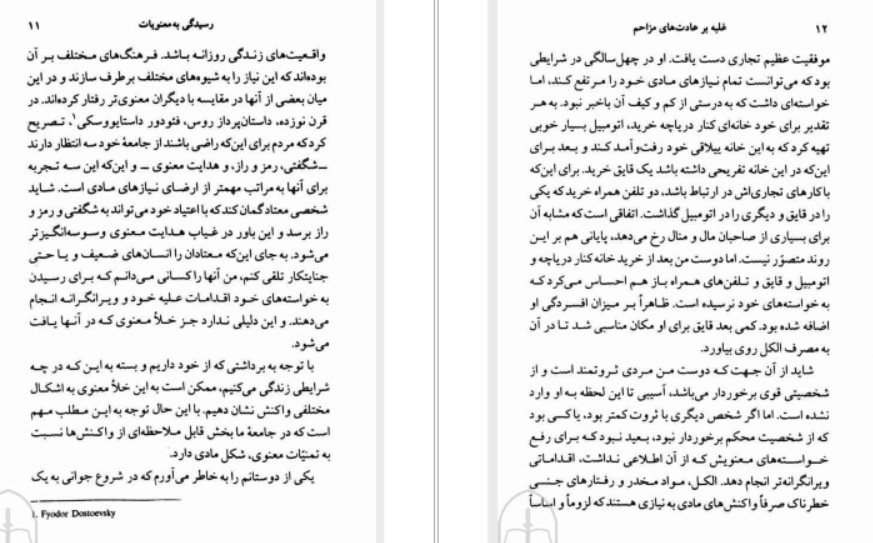 رسیدگی به معنویات ۱۱
واقعیت‌های زندگی روزانه باشد. فرهنگ‌های مختلف بر آن
بوده‌اند که این نیاز را به شیوه‌های مختلف برطرف سازند و در این
میان بعضی از آنها در مقایسه با دیگران معنوی‌تر رفتار کرده‌اند. در
قرن نوزده، داستان‌پرداز روس، فئودور داستایووسکی۱، تصریح
کرد که مردم برای این‌که راضی باشند از جامعهٔ خود سه انتظار دارند
ـ شگفتی، رمز و راز، و هدایت معنوی ـ و این‌که این سه تجربه
برای آنها به مراتب مهمتر از ارضای نیازهای مادی است. شاید
شخصی معتاد گمان کند که با اعتیاد خود می‌تواند به شگفتی و رمز و
راز برسد و این باور در غیاب هدایت معنوی وسوسه‌انگیزتر
می‌شود. به جای این‌که معتادان را انسان‌های ضعیف و یا حتی
جنایتکار تلقی کنم، من آنها را کسانی می‌دانم که برای رسیدن
به خواسته‌های خود اقدامات علیه خود و ویرانگرانه انجام
می‌دهند. و این دلیلی ندارد جز خلأ معنوی که در آنها یافت
می‌شود.
با توجه به برداشتی که از خود داریم و بسته به این که در چه
شرایطی زندگی می‌کنیم، ممکن است به این خلأ معنوی به اشکال
مختلفی واکنش نشان دهیم. با این حال توجه به این مطلب مهم
است که در جامعهٔ ما بخش قابل ملاحظه‌ای از واکنش‌ها نسبت
به تمنیّات معنوی، شکل مادی دارد.
یکی از دوستانم را به خاطر می‌آورم که در شروع جوانی به یک
1. Fyodor Dostoevsky
۱۲ غلبه بر عادت‌های مزاحم
موفقیت عظیم تجاری دست یافت. او در چهل‌سالگی در شرایطی
بود که می‌توانست تمام نیازهای مادی خود را مرتفع کند، اما
خواسته‌ای داشت که به درستی از کم و کیف آن باخبر نبود. به هر
تقدیر برای خود خانه‌ای کنار دریاچه خرید، اتومبیل بسیار خوبی
تهیه کرد که به این خانه ییلاقی خود رفت‌وآمد کند و بعد برای
این‌که در این خانه تفریحی داشته باشد یک قایق خرید. برای این‌که
با کارهای تجاری‌اش در ارتباط باشد، دو تلفن همراه خرید که یکی
را در قایق و دیگری را در اتومبیل گذاشت. اتفاقی است که مشابه آن
برای بسیاری از صاحبان مال و منال رخ می‌دهد، پایانی هم بر این
روند متصوّر نیست. اما دوست من بعد از خرید خانه کنار دریاچه و
اتومبیل و قایق و تلفن‌های همراه باز هم احساس می‌کرد که
به خواسته‌های خود نرسیده است. ظاهراً بر میزان افسردگی او
اضافه شده بود. کمی بعد قایق برای او مکان مناسبی شد تا در آن
به مصرف الکل روی بیاورد.
شاید از آن جهت که دوست من مردی ثروتمند است و از
شخصیتی قوی برخوردار می‌باشد، آسیبی تا این لحظه به او وارد
نشده است. اما اگر شخص دیگری با ثروت کمتر بود، یا کسی بود
که از شخصیت محکم برخوردار نبود، بعید نبود که برای رفع
خواسته‌های معنویش که از آن اطلاعی نداشت، اقداماتی
ویرانگرانه‌تر انجام دهد. الکل، مواد مخدر و رفتارهای جنسی
خطرناک صرفاً واکنش‌های مادی به نیازی هستند که لزوماً و اساساً